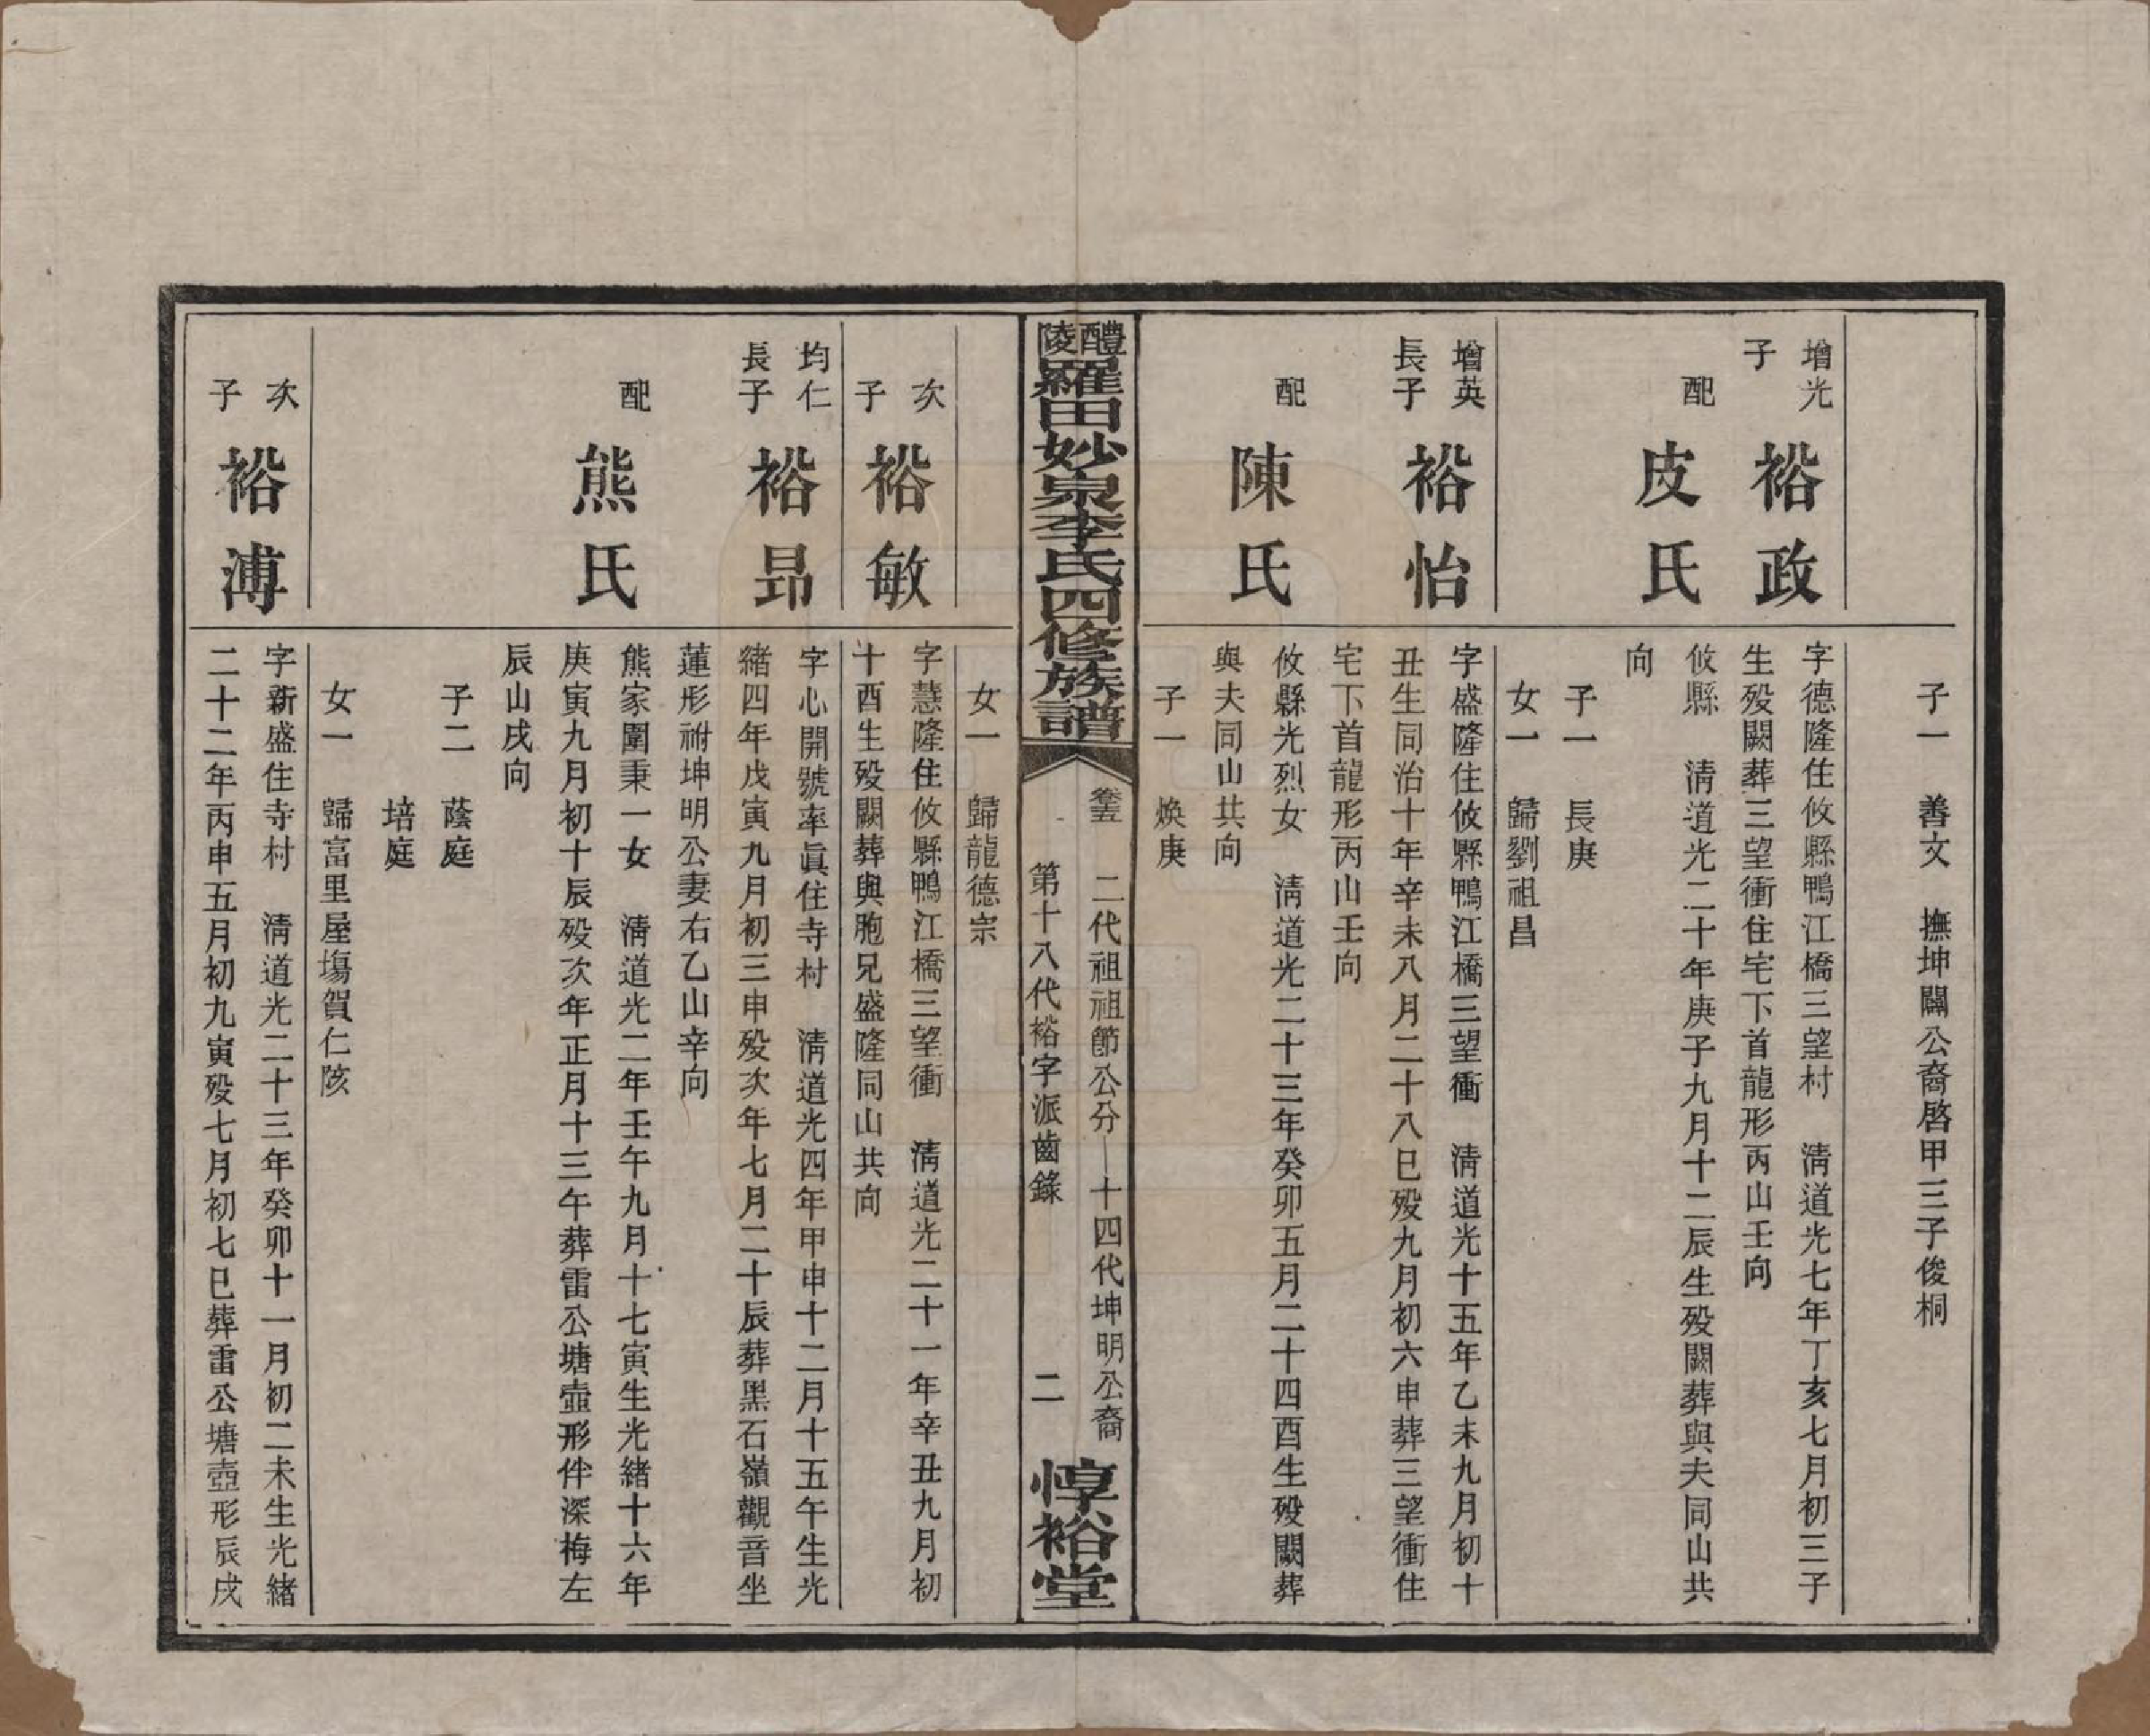 子一　善文　撫坤闢公裔啓甲三子俊桐
增光
子
裕政
字德隆住攸縣鴨江橋三望村　清道光七年丁亥七月初三子
生殁闕葬三望衝住宅下首龍形丙山壬向
配
皮氏
攸縣　清道光二十年庚子九月十二辰生殁闕葬與夫同山共
向
子一　長庚
女一　歸劉祖昌
增英
長子
裕怡
字盛隆住攸縣鴨江橋三望衝　清道光十五年乙未九月初十
丑生同治十年辛未八月二十八巳殁九月初六申葬三望衝住
宅下首龍形丙山壬向
配
陳氏
攸縣光烈女　清道光二十三年癸卯五月二十四酉生殁闕葬
與夫同山共向
子一　煥庚
醴陵羅田妙泉李氏四修族譜
卷五
二代祖祖節公分—十四代坤明公裔
第十八代裕字派齒錄
二
惇裕堂
女一　歸龍德宗
次
子
裕敏
字慧隆住攸縣鴨江橋三望衝　清道光二十一年辛丑九月初
十酉生殁闕葬與胞兄盛隆同山共向
均仁
長子
裕昂
字心開號率真住寺村　清道光四年甲申十二月十五午生光
緒四年戊寅九月初三申殁次年七月二十辰葬黑石嶺觀音坐
蓮形祔坤明公妻右乙山辛向
配
熊氏
熊家圍秉一女　清道光二年壬午九月十七寅生光緒十六年
庚寅九月初十辰殁次年正月十三午葬雷公塘壺形伴深梅左
辰山戌向
子二　蔭庭
培庭
女一　歸富里屋塲賀仁陔
次
子
裕溥
字新盛住寺村　清道光二十三年癸卯十一月初二未生光緒
二十二年丙申五月初九寅殁七月初七巳葬雷公塘壺形辰戌